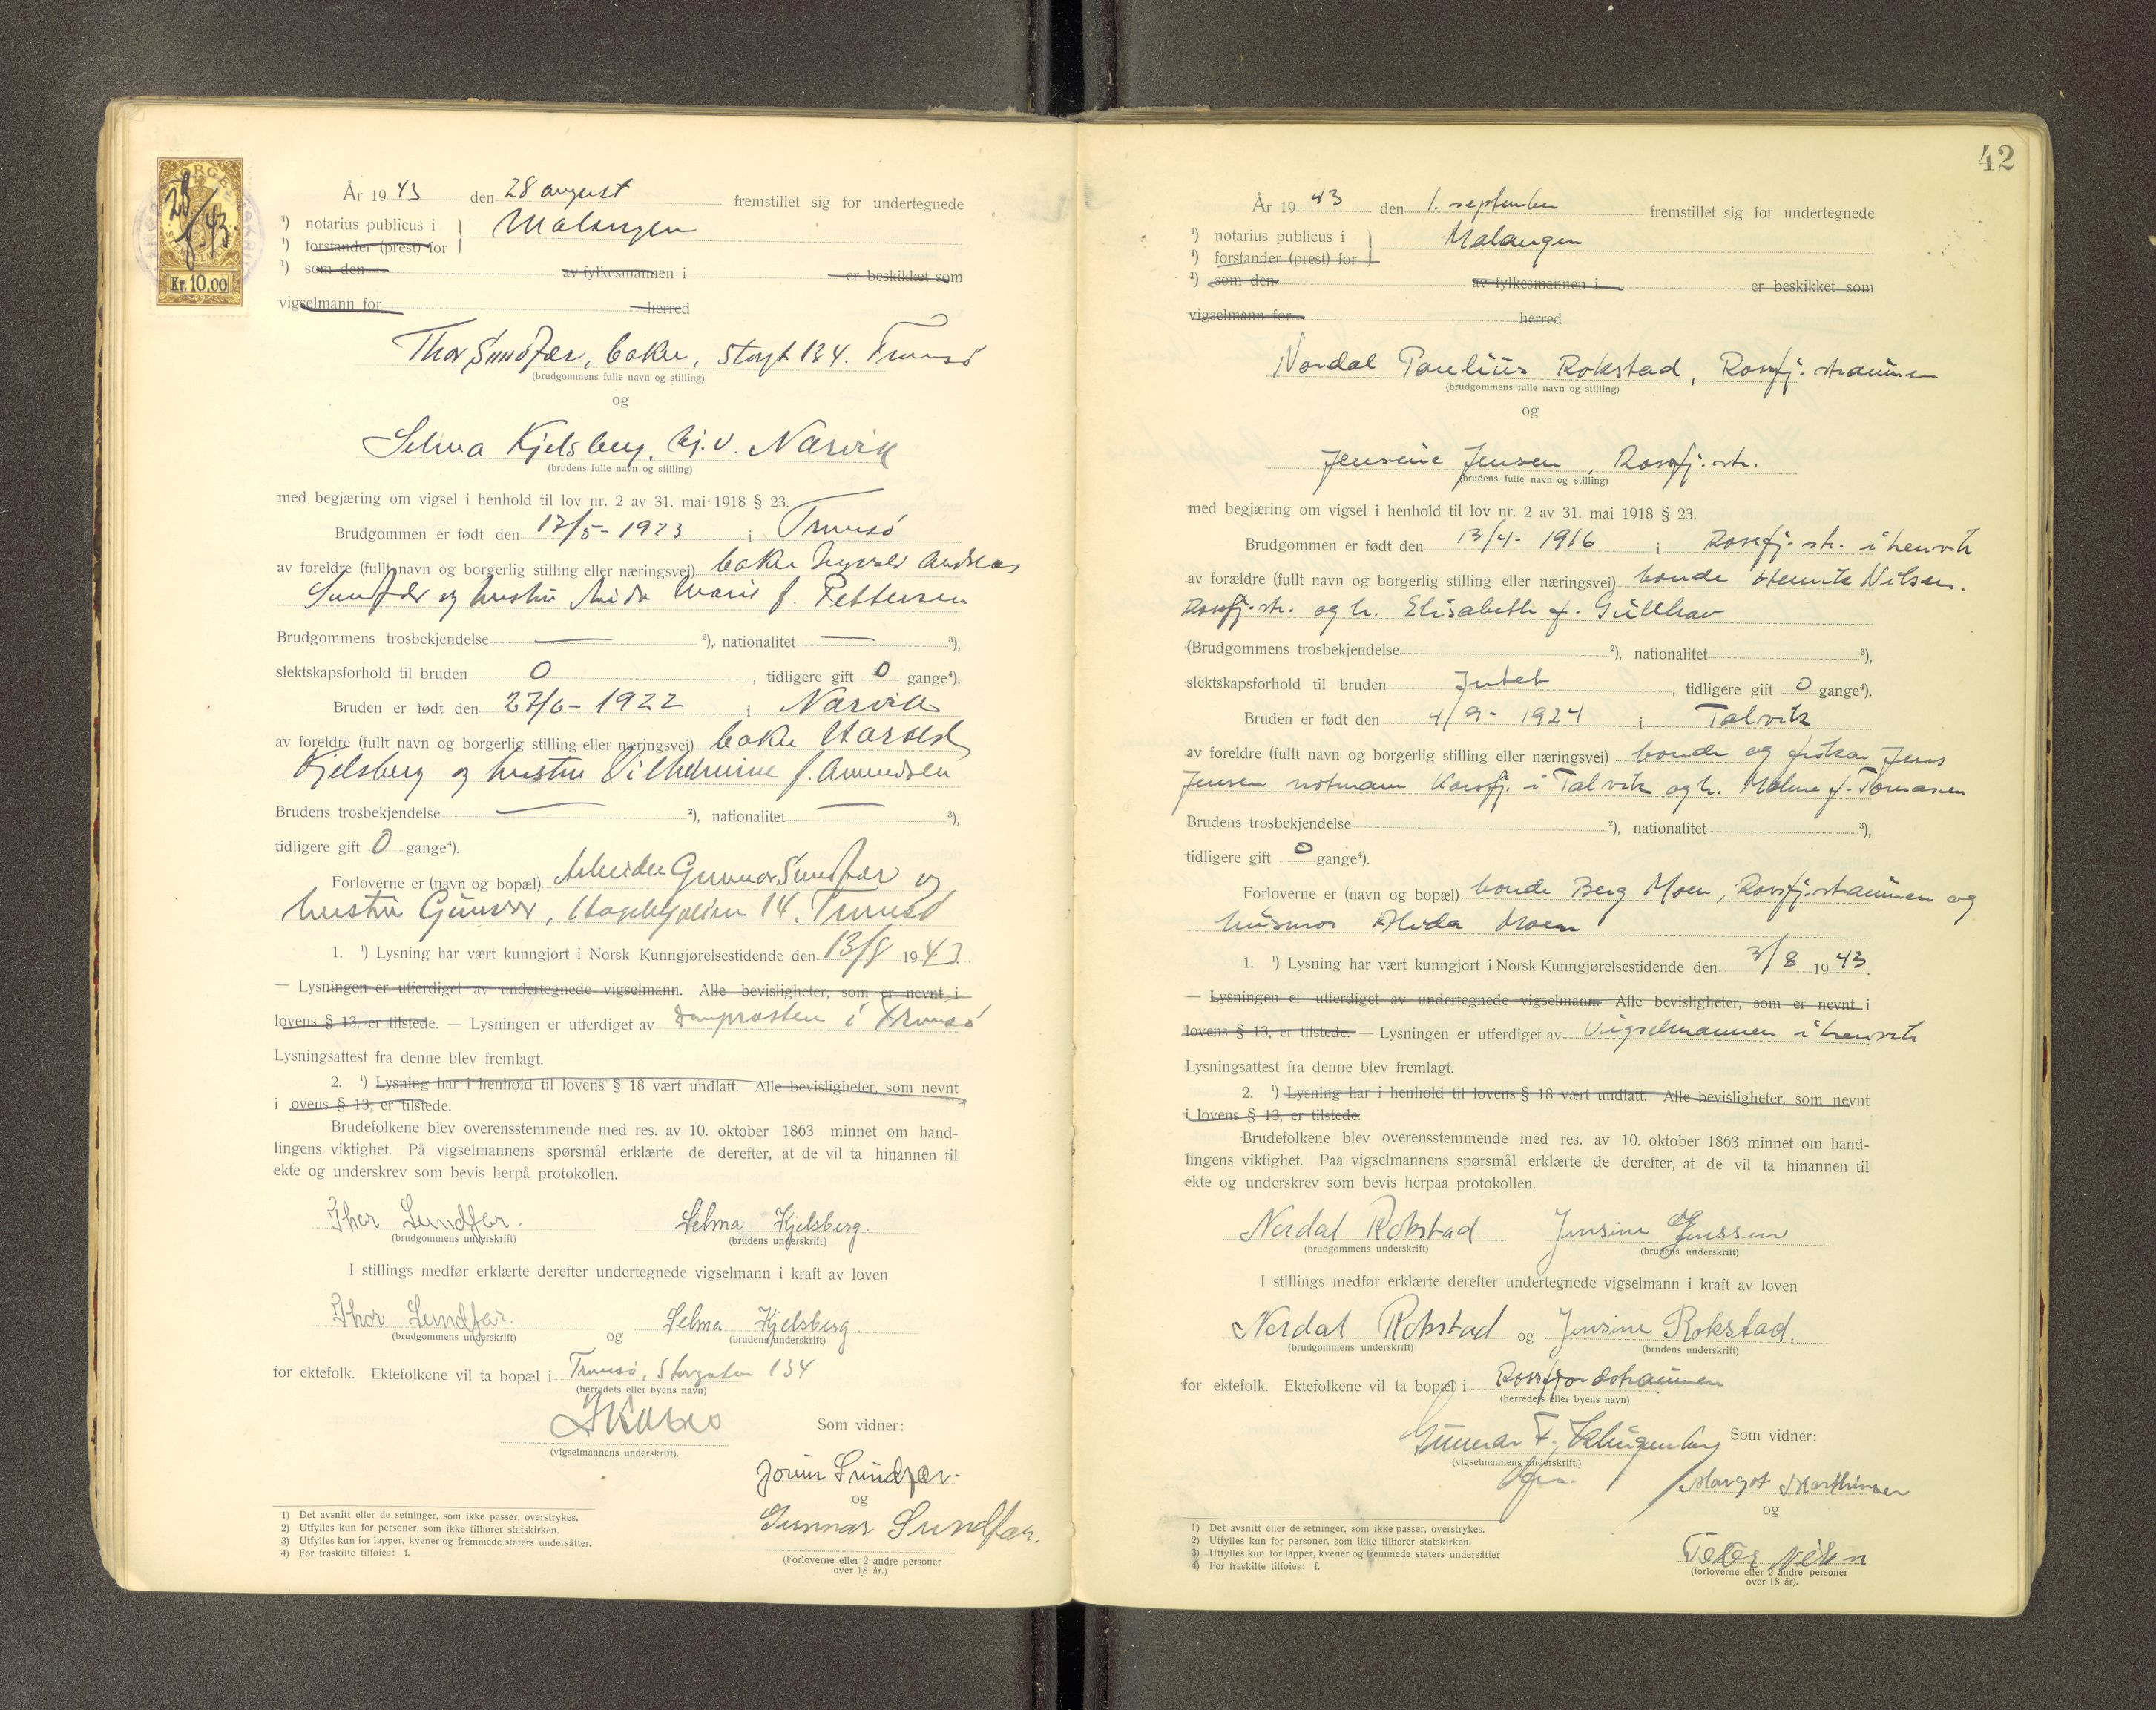 NORGE
28/8-43.
Kr. 10.00
År 1943 den 28 august fremstillet sig for undertegnede
¹) notarius publicus i } Malangen
¹) forstander (prest) for
¹) som den av fylkesmannen i er beskikket som
vigselmann for herred
Thor Sundfær, baker, Storgt 134. Tromsø
(brudgommens fulle navn og stilling)
og
Selma Kjelsberg, hj.v. Narvik
(brudens fulle navn og stilling)
med begjæring om vigsel i henhold til lov nr. 2 av 31. mai 1918 § 23.
Brudgommen er født den 17/5- 1923 i Tromsø
av foreldre (fullt navn og borgerlig stilling eller næringsvei) baker Ingvald Andreas
Sundfær og hustru Marie f. Pettersen
Brudgommens trosbekjendelse — ²), nationalitet — ³),
slektskapsforhold til bruden 0, tidligere gift 0 gange⁴).
Bruden er født den 27/6- 1922 i Narvik
av foreldre (fullt navn og borgerlig stilling eller næringsvei) baker Harald
Kjelsberg og hustru Vilhelmine f. Amundsen
Brudens trosbekjendelse — ²), nationalitet — ³),
tidligere gift 0 gange⁴).
Forloverne er (navn og bopæl) Arbeider Gunnar Sundfær og
hustru Gunvor, 14. Tromsø
1. ¹) Lysning har vært kunngjort i Norsk Kunngjørelsestidende den 13/8 1943.
— Lysningen er utferdiget av undertegnede vigselmann. Alle bevisligheter, som er nevnt i
lovens § 13, er tilstede. — Lysningen er utferdiget av domprosten i Tromsø
Lysningsattest fra denne blev fremlagt.
2. ¹) Lysning har i henhold til lovens § 18 vært undlatt. Alle bevisligheter, som nevnt
i ovens § 13, er tilstede.
Brudefolkene blev overensstemmende med res. av 10. oktober 1863 minnet om hand-
lingens viktighet. På vigselmannens spørsmål erklærte de derefter, at de vil ta hinannen til
ekte og underskrev som bevis herpå protokollen.
Thor Sundfær. Selma Kjelsberg.
(brudgommens underskrift) (brudens underskrift)
I stillings medfør erklærte derefter undertegnede vigselmann i kraft av loven
Thor Sundfær. og Selma Kjelsberg.
(brudgommens underskrift) (brudens underskrift)
for ektefolk. Ektefolkene vil ta bopæl i Tromsø, Storgaten 134
(herredets eller byens navn)
Som vidner:
(vigselmannens underskrift).
Sundfær.
og
Gunnar Sundfær.
(Forloverne eller 2 andre personer
over 18 år.)
1) Det avsnitt eller de setninger, som ikke passer, overstrykes.
2) Utfylles kun for personer, som ikke tilhører statskirken.
3) Utfylles kun for lapper, kvener og fremmede staters undersåtter.
4) For fraskilte tilføies: f.
42
År 1943 den 1. september fremstillet sig for undertegnede
¹) notarius publicus i } Malangen
¹) forstander (prest) for
¹) som den av fylkesmannen i er beskikket som
vigselmann for herred
Nordal Paulius Rokstad, Rossfj. straumen
(brudgommens fulle navn og stilling)
og
Jensine Jensen, Rossfj. str.
(brudens fulle navn og stilling)
med begjæring om vigsel i henhold til lov nr. 2 av 31. mai 1918 § 23.
Brudgommen er født den 13/4- 1916 i Rossfj. str. i Lenvik
av forældre (fullt navn og borgerlig stilling eller næringsvei) bonde Nilsen.
Rossfj. str. og h. Elisabeth f. Gullhav
(Brudgommens trosbekjendelse ²), nationalitet ³),
slektskapsforhold til bruden Intet, tidligere gift 0 gange⁴).
Bruden er født den 4/9- 1924 i Talvik
av foreldre (fullt navn og borgerlig stilling eller næringsvei) bonde og fisker Jens
Jensen notmann i Talvik og h. f. Tomasen
Brudens trosbekjendelse ²), nationalitet ³),
tidligere gift 0 gange⁴).
Forloverne er (navn og bopæl) bonde Berg Moen, Rossfj. straumen og
husmor Alida Moen
1. ¹) Lysning har vært kunngjort i Norsk Kunngjørelsestidende den 3/8 1943.
— Lysningen er utferdiget av undertegnede vigselmann. Alle bevisligheter, som er nevnt i
lovens § 13, er tilstede. — Lysningen er utferdiget av Vigselmannen i Lenvik
Lysningsattest fra denne blev fremlagt.
2. ¹) Lysning har i henhold til lovens § 18 vært undlatt. Alle bevisligheter, som nevnt
i lovens § 13, er tilstede.
Brudefolkene blev overensstemmende med res. av 10. oktober 1863 minnet om hand-
lingens viktighet. Paa vigselmannens spørsmål erklærte de derefter, at de vil ta hinannen til
ekte og underskrev som bevis herpaa protokollen.
Nordal Rokstad Jensine Jenssen
(brudgommens underskrift) (brudens underskrift)
I stillings medfør erklærte derefter undertegnede vigselmann i kraft av loven
Nordal Rokstad og Jensine Rokstad.
(brudgommens underskrift) (brudens underskrift)
for ektefolk. Ektefolkene vil ta bopæl i Rossfjordstraumen
(herredets eller byens navn)
Gunnar F. Klingenberg Som vidner:
(vigselmannens underskrift.)
Margot Marthinsen
og
Peter Nilsen
(forloverne eller 2 andre personer
over 18 år).
1) Det avsnitt eller de setninger, som ikke passer, overstrykes.
2) Utfylles kun for personer, som ikke tilhører statskirken.
3) Utfylles kun for lapper, kvener og fremmede staters undersåtter
4) For fraskilte tilføies: f.